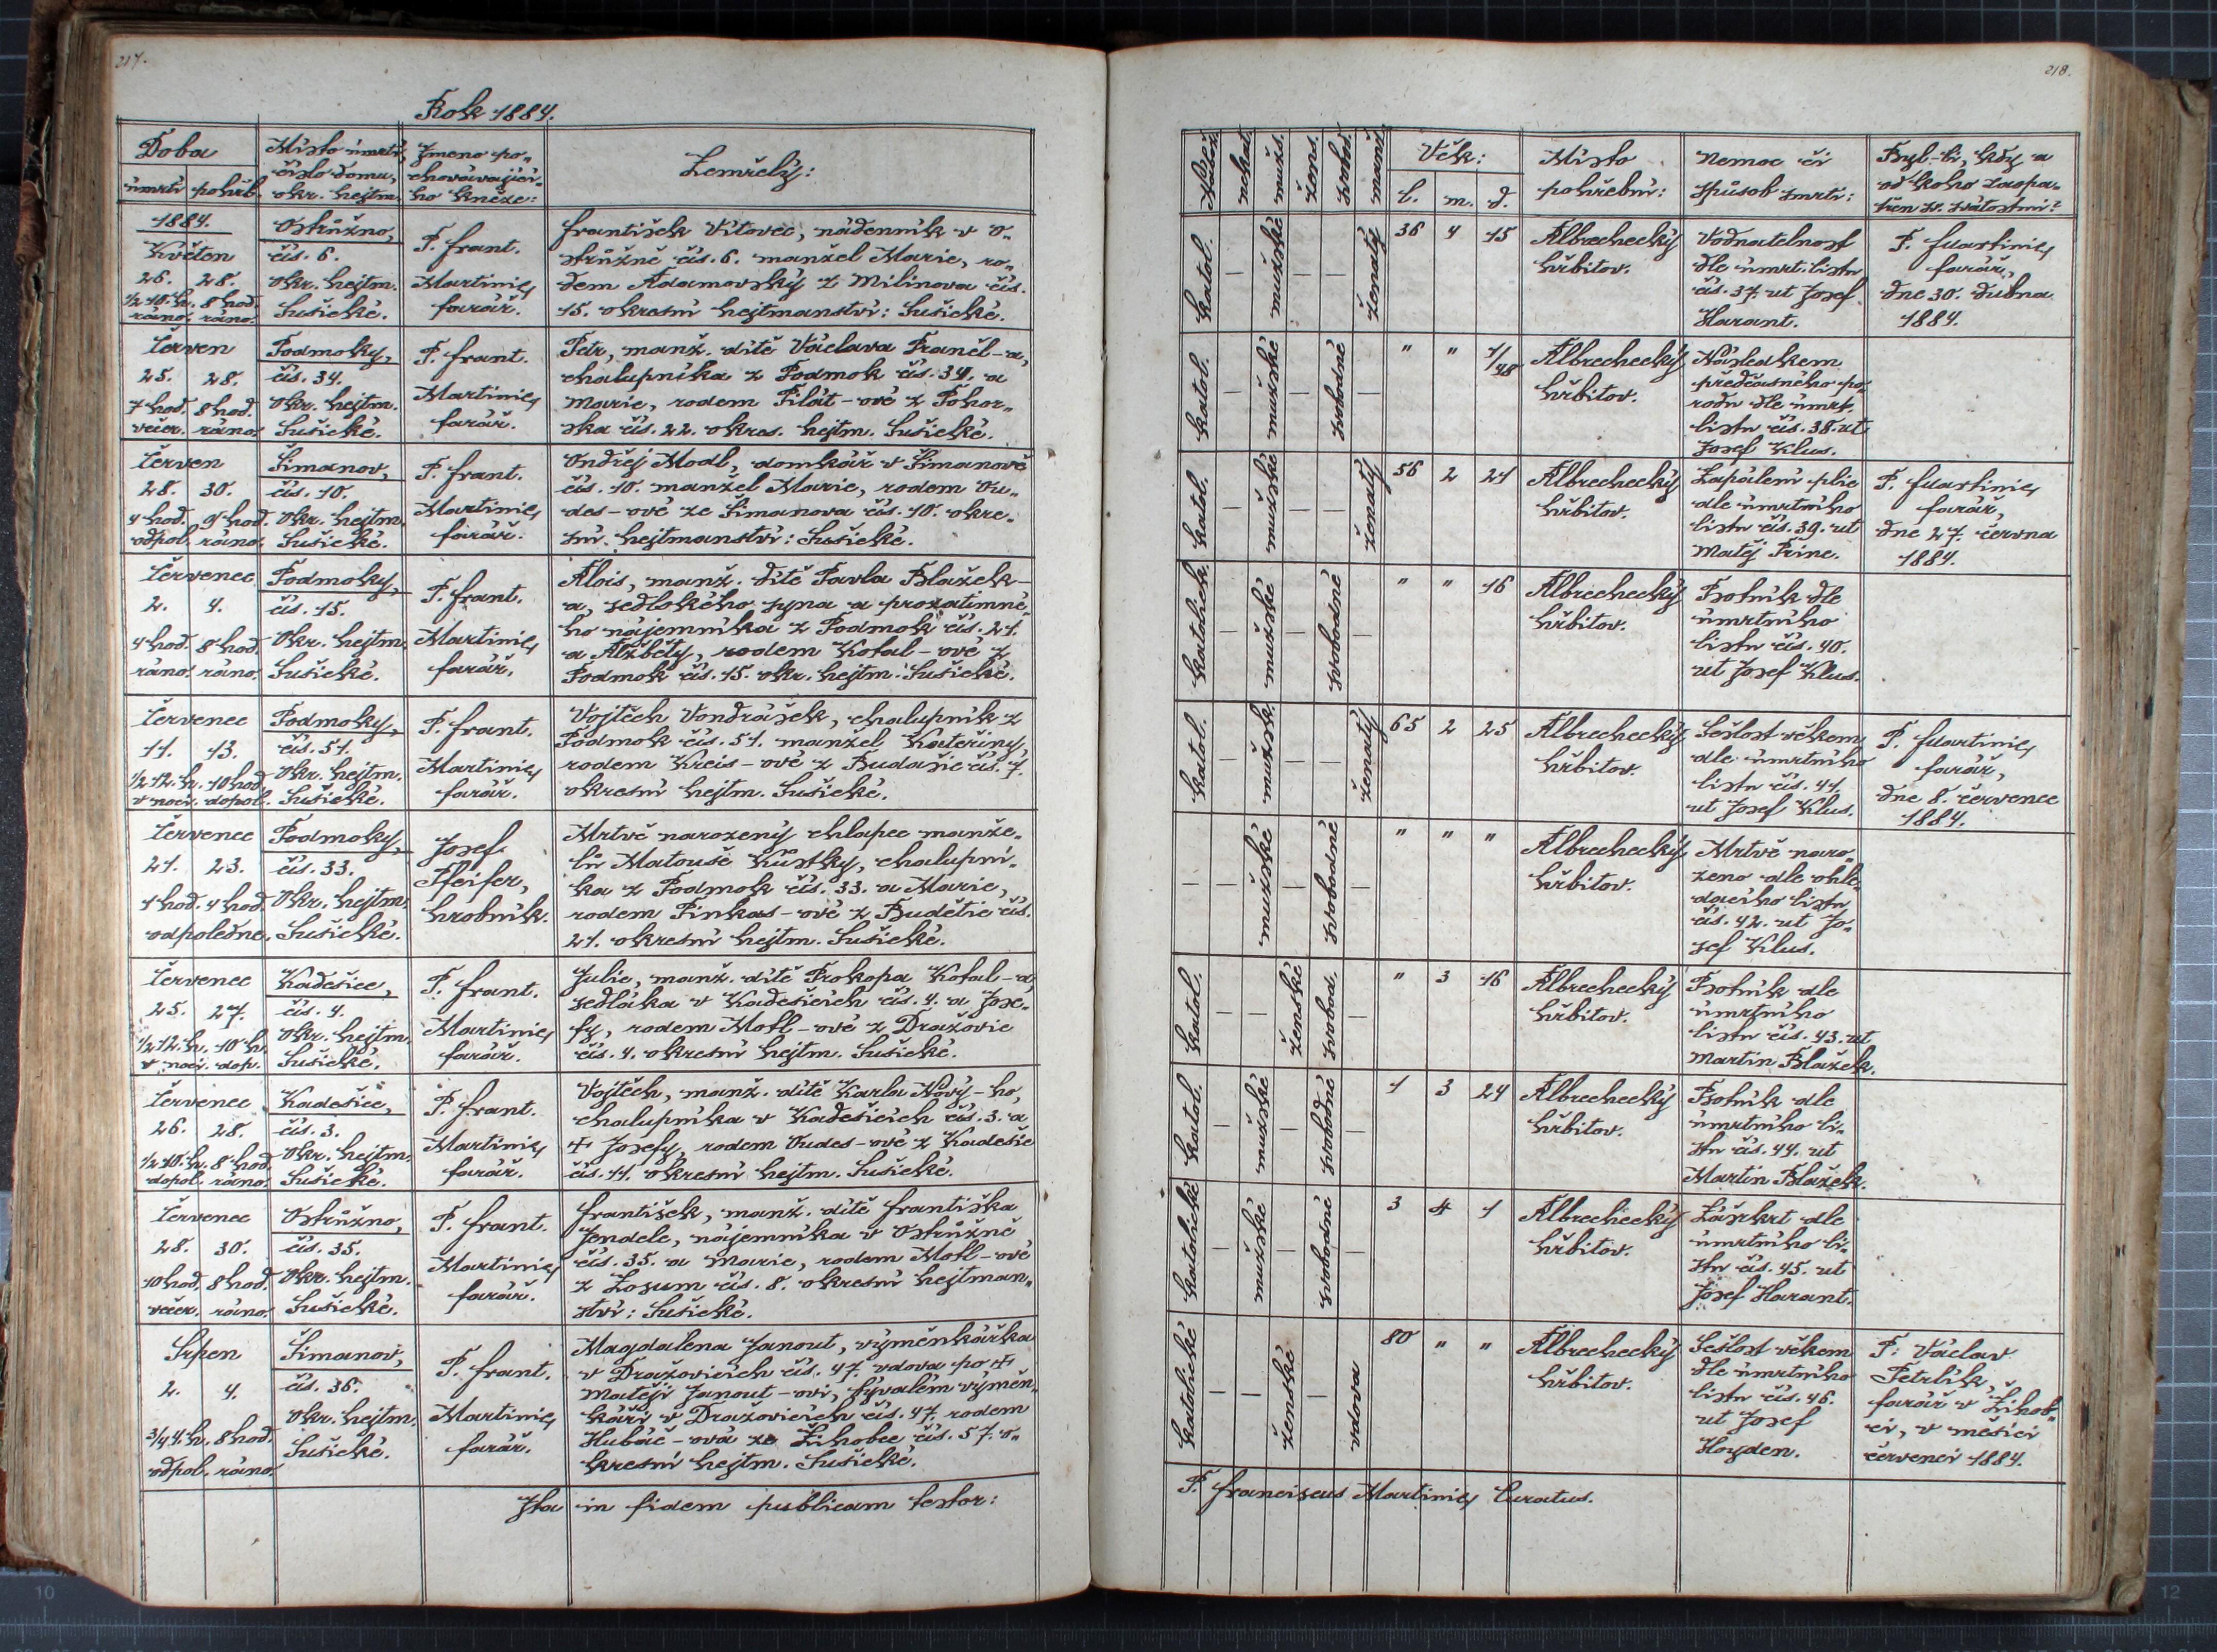 217.
Rok 1884.
Doba
úmrtí pohřb.
Místo úmrtí,
číslo domu,
okr. hejtm.
Jmeno po„
chovávající„
ho kněze:
Zemřelý:
1884.
Květen
26. 28.
1/2 10. h. 8 hod.
ráno. ráno.
Ostružno,
čís. 6.
Okr. hejtm.
Sušické.
P. Frant.
Martinic,
farář.
František Vítovec, nádenník v O„
stružně čís. 6. manžel Marie, ro„
dem Adamovský z Milínova čís.
15. okresní hejtmanství: Sušické.
Červen
25. 28.
7 hod. 8 hod.
večer. ráno.
Podmoky,
čís. 34.
Okr. hejtm.
Sušické.
P. Frant.
Martinic,
farář.
Petr, manž. dítě Václava Praněl-a,
chalupníka z Podmok čís. 34. a
Marie, rodem Pilát-ové z Pohor„
ska čís. 22. okres. hejtm. Sušické.
Červen
28. 30.
4 hod. 9 hod.
odpol. ráno.
Šimanov,
čís. 10.
Okr. hejtm.
Sušické.
P. Frant.
Martinic,
farář.
Ondřej Modl, domkář v Šimanově
čís. 10. manžel Marie, rodem Ou„
des-ové ze Šimanova čís. 10. okre„
sní hejtmanství: Sušické.
Červenec
2. 4.
4 hod. 8 hod.
ráno. ráno.
Podmoky,
čís. 15.
Okr. hejtm.
Sušické.
P. Frant.
Martinic,
farář.
Alois, manž. dítě Pavla Blažek-
a, sedlského syna a prozatimné„
ho nájemníka z Podmok čís. 21.
a Alžběty, rodem Kotal-ové z
Podmok čís. 15. okr. hejtm. Sušické.
Červenec
11. 13.
1/2 12. h. 10 hod.
v noci. dopol.
Podmoky,
čís. 51.
Okr. hejtm.
Sušické.
P. Frant.
Martinic,
farář.
Vojtěch Vondrášek, chalupník z
Podmok čís. 51. manžel Kateřiny,
rodem Kreis-ové z Budašic čís. 7.
okresní hejtm. Sušické.
Červenec
21. 23.
1 hod. 4 hod.
odpoledne.
Podmoky,
čís. 33.
Okr. hejtm.
Sušické.
Josef
Pfeifer,
hrobník.
Mrtvě narozený chlapec manže„
lů Matouše Kůstky, chalupní„
ka z Podmok čís. 33. a Marie,
rodem Pinkas-ové z Budětic čís.
21. okresní hejtm. Sušické.
Červenec
25. 27.
1/2 12. h. 10 h.
v noci. dop.
Kadešice,
čís. 4.
Okr. hejtm.
Sušické.
P. Frant.
Martinic,
farář.
Julie, manž. dítě Prokopa Kotal-a,
sedláka v Kadešicích čís. 4. a Jose„
fy, rodem Motl-ové z Dražovic
čís. 4. okresní hejtm. Sušické.
Červenec
26. 28.
1/2 10. h. 8 hod.
dopol. ráno.
Kadešice,
čís. 3.
Okr. hejtm.
Sušické.
P. Frant.
Martinic,
farář.
Vojtěch, manž. dítě Karla Nový-ho,
chalupníka v Kadešicích čís. 3. a
+ Josefy, rodem Oudes-ové z Kadešic
čís. 11. okresní hejtm. Sušické.
Červenec
28. 30.
10 hod. 8 hod.
večer. ráno.
Ostružno,
čís. 35.
Okr. hejtm.
Sušické.
P. Frant.
Martinic,
farář.
František, manž. dítě Františka
Jendele, nájemníka v Ostružně
čís. 35. a Marie, rodem Motl-ové
z Lozum čís. 8. okresní hejtman„
ství: Sušické.
Srpen
2. 4.
3/4 4. h. 8 hod.
odpol. ráno.
Šimanov,
čís. 36.
Okr. hejtm.
Sušické.
P. Frant.
Martinic,
farář.
Magdalena Janout, výměnkářka
v Dražovicích čís. 47. vdova po +
Matěji Janout-ovi, bývalém výměn„
káři v Dražovicích čís. 47. rodem
Hubáč-ová ze Žihobec čís. 57. o„
kresní hejtm. Sušické.
Ita in fidem publicam testor:
218.
nekat.
mužs.
žens.
svobod.
Věk:
l. m. d.
Místo
pohřební:
Nemoc či
způsob smrti:
Byl-li, kdy a
od koho zaopa„
třen sv. svátostmi?
katol.
—
mužské
—
—
ženatý
36 4 15
Albrechecký
hřbitov.
Vodnatelnost
dle úmrt. listu
čís. 37. ut Josef
Harant.
P. F. Martinic,
farář,
dne 30. dubna
1884.
katol.
—
mužské
—
svobodné
—
" " 1/48
Albrechecký
hřbitov.
Následkem
předčasného po„
rodu dle úmrt.
listu čís. 38. ut
Josef Klus.
katol.
—
mužské
—
—
ženatý
56 2 21
Albrechecký
hřbitov.
Zapálení plic
dle úmrtního
listu čís. 39. ut
Matěj Princ.
P. F. Martinic,
farář,
dne 27. června
1884.
katolické
—
mužské
—
svobodné
—
" " 16
Albrechecký
hřbitov.
Psotník dle
úmrtního
listu čís. 40.
ut Josef Klus.
katol.
—
mužsk.
—
—
ženatý
65 2 25
Albrechecký
hřbitov.
Sešlost věkem
dle úmrtního
listu čís. 41.
ut Josef Klus.
P. F. Martinic,
farář,
dne 8. července
1884.
—
—
mužské
—
svobodné
—
" " "
Albrechecký
hřbitov.
Mrtvě naro„
zeno dle ohle„
dacího listu
čís. 42. ut Jo„
sef Klus.
katol.
—
—
ženské
svobod.
—
" 3 16
Albrechecký
hřbitov.
Psotník dle
úmrtního
listu čís. 43. ut
Martin Blažek.
katol.
—
mužské
—
svobodné
—
1 3 24
Albrechecký
hřbitov.
Psotník dle
úmrtního li„
stu čís. 44. ut
Martin Blažek.
katolické
—
mužské
—
svobodné
—
3 4 1
Albrechecký
hřbitov.
Záškrt dle
úmrtního li„
stu čís. 45. ut
Josef Harant.
katolické
—
—
ženské
—
vdova
80 " "
Albrechecký
hřbitov.
Sešlost věkem
dle úmrtního
listu čís. 46.
ut Josef
Hoyden.
P. Václav
Petrlík,
farář v Žihob„
ci, v měsíci
červenci 1884.
P. Franciscus Martinic, Curatus.
10
12